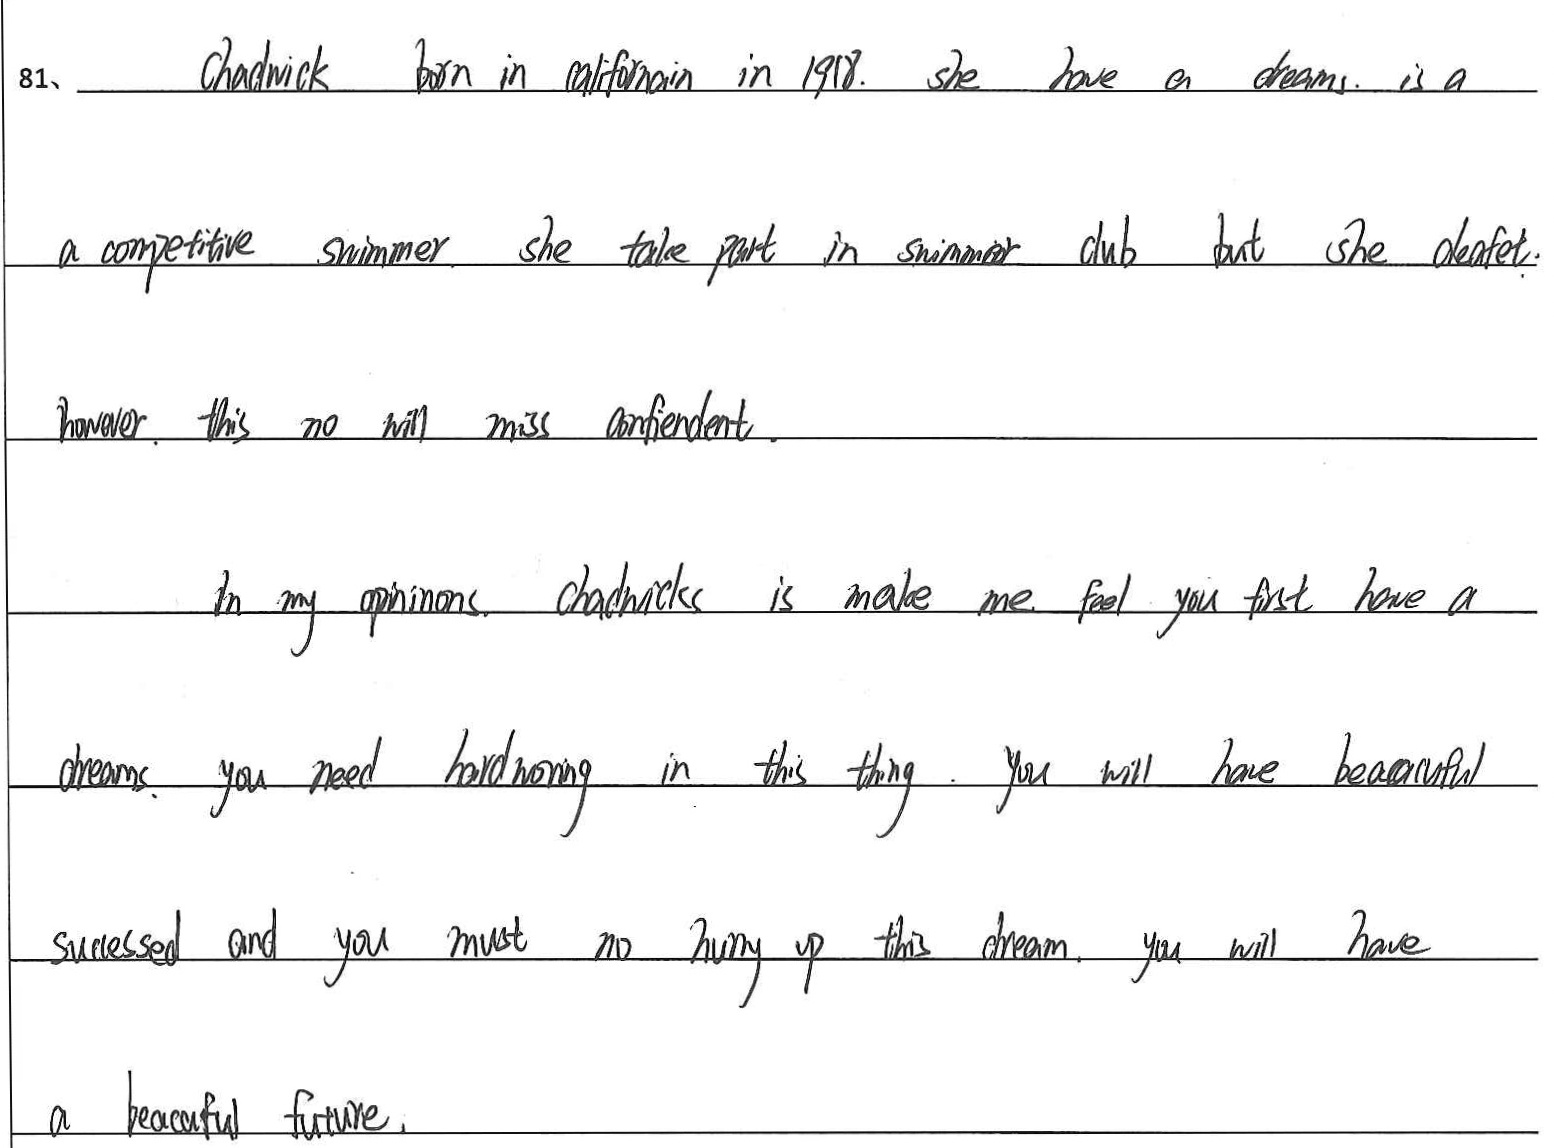 81、 Chadwick born in californain in 1918. she have a dreams. is a
a competitive swimmer. she take part in swimmor club but she deafet.
however. this no will miss confiendent.
In my opninons. Chadwicks is make me feel you first have a
dreams. you need hardworing in this thing. You will have beacauful
successed and you must no hurry up this dream. you will have
a beacauful future.